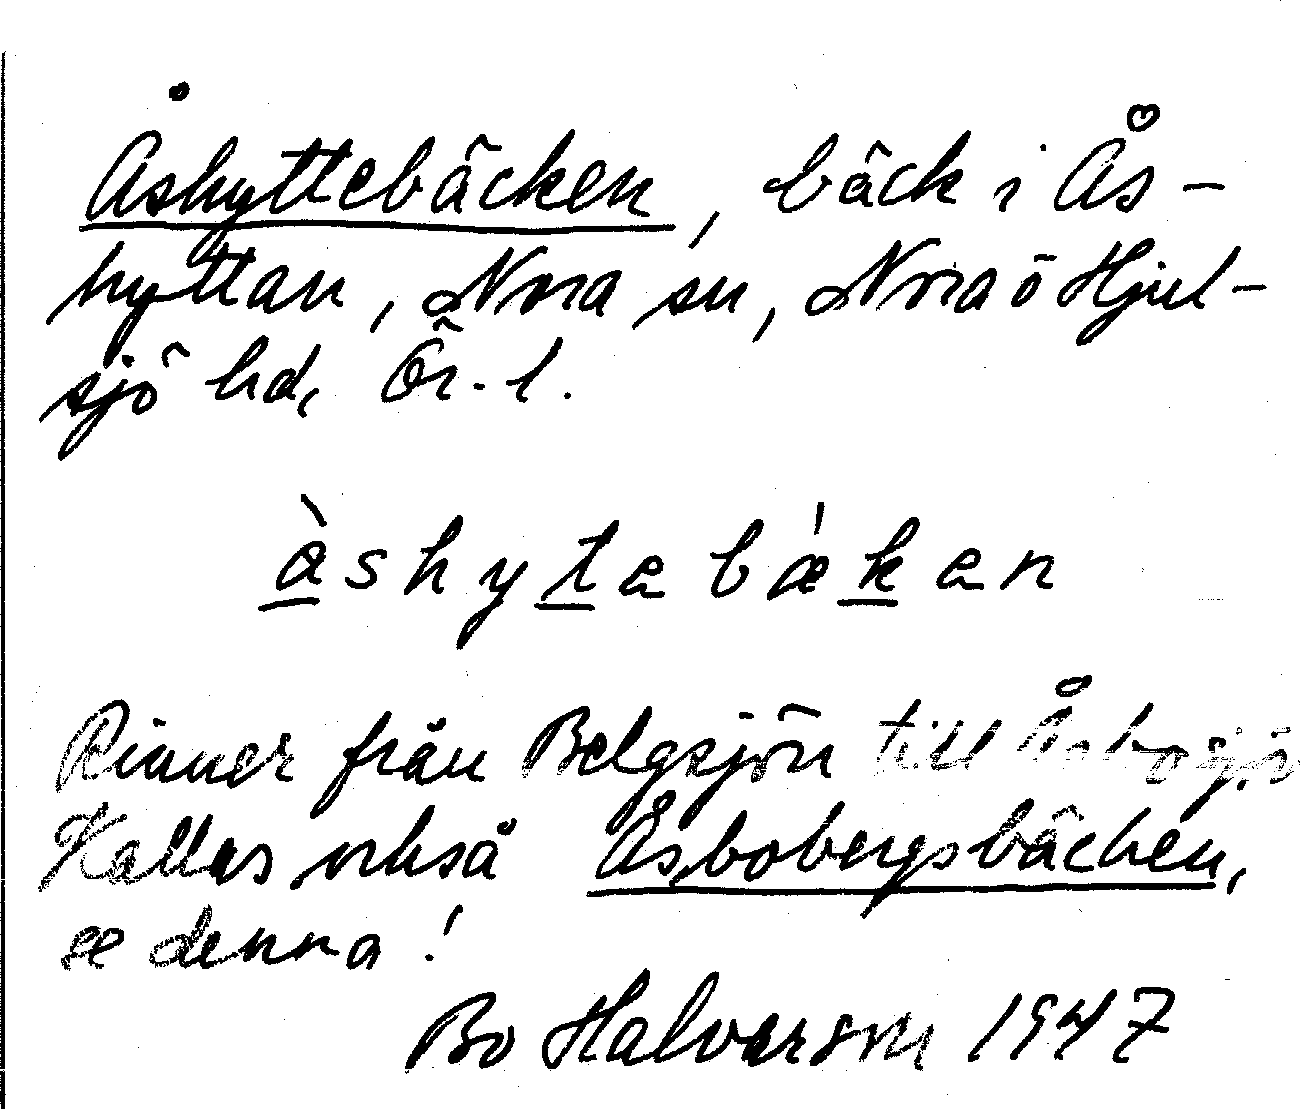 Åshyttebäcken, bäck i Ås-
hyttan, Nora sn, Nora ö Hjul-
sjö hd, Ör. l.
àshytebækən
Rinner från Belgsjön till
Kallas också Åsbobergsbäcken,
se denna!
Bo Halvarson 1947